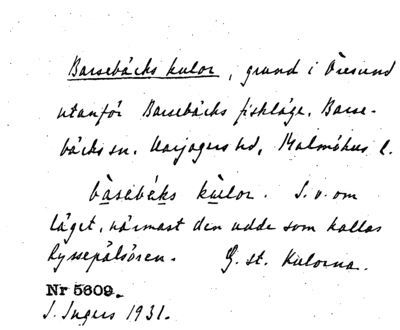 Barsebäcks kulor, grund i Öresund
utanför Barsebäcks fiskläge, Barse-
bäcks sn. Harjagers hd, Malmöhus l.
bàsebäks kùlor. S.v. om
läget, närmast den udde som kallas
G. st. Kulorna.
Nr 5609.
I. Ingers 1931.